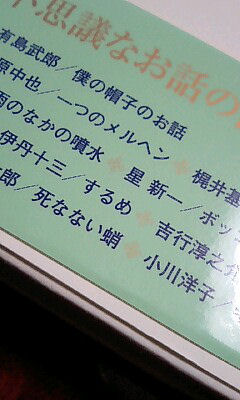 不思議なお話の
有島武郎／僕の帽子のお話
原中也／一つのメルヘン ❖ 梶井基
雨のなかの噴水 ❖ 星 新一／ボッ
伊丹十三／するめ ❖ 吉行淳之介
郎／死なない蛸 ❖ 小川洋子／